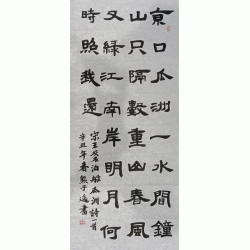 京口瓜洲一水間鐘
山只隔數重山春風
又綠江南岸明月何
時照我還
宋王安石泊船瓜洲詩一首
辛丑年春書